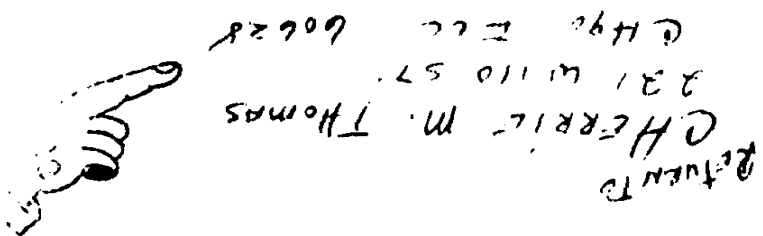 RETURN TO
CHERRIE M. THOMAS
221 W 110 ST.
CHgo ILL 60628